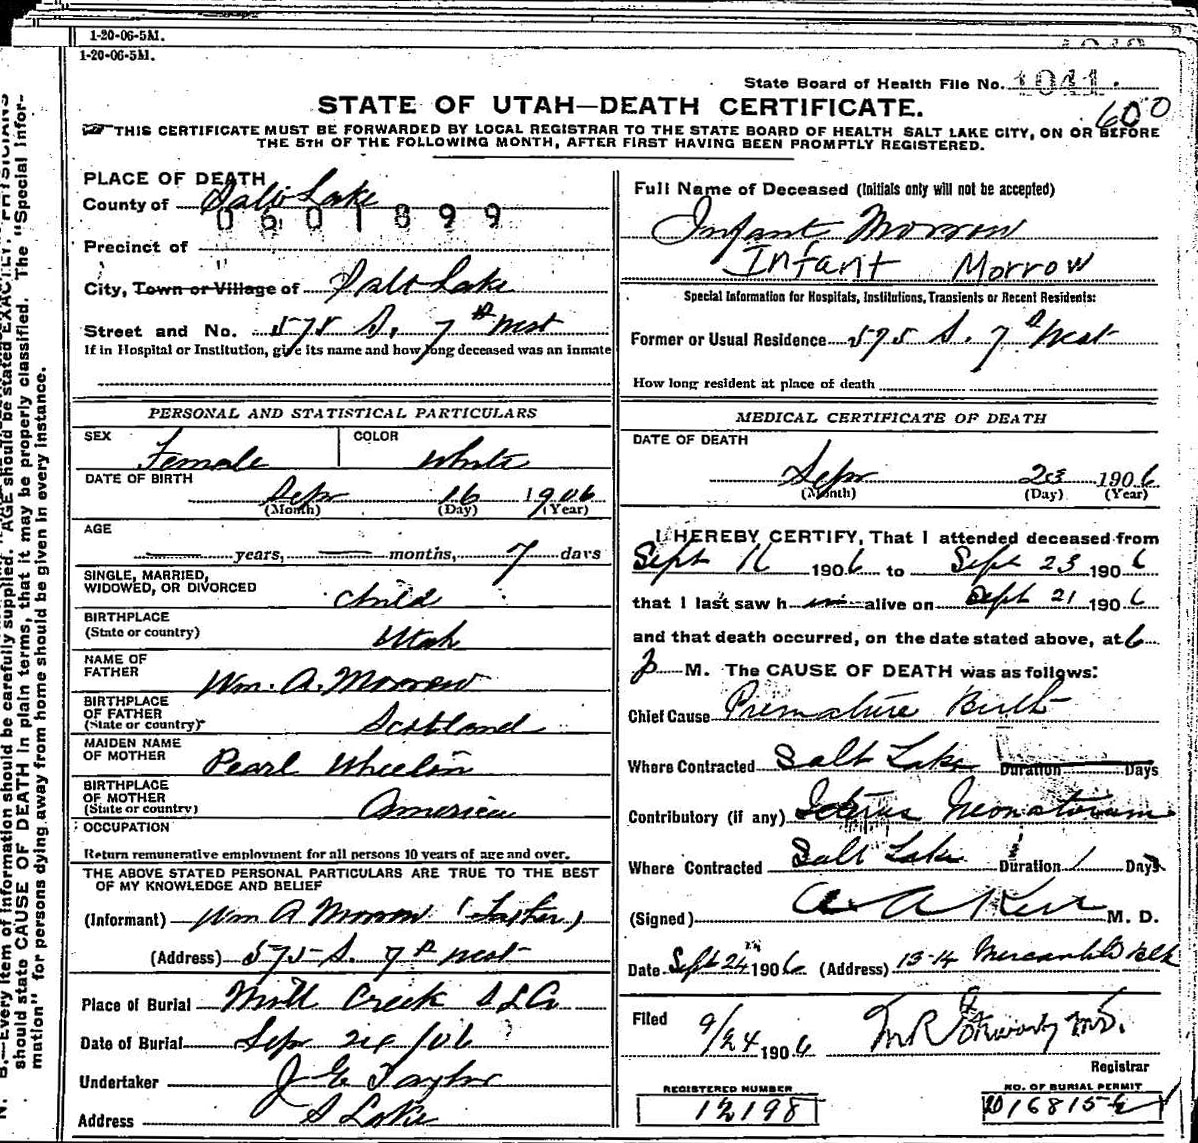 1-20-06-5M.
1-20-06-5M.
State Board of Health File No. 1041
600
STATE OF UTAH—DEATH CERTIFICATE.
THIS CERTIFICATE MUST BE FORWARDED BY LOCAL REGISTRAR TO THE STATE BOARD OF HEALTH SALT LAKE CITY, ON OR BEFORE
THE 5TH OF THE FOLLOWING MONTH, AFTER FIRST HAVING BEEN PROMPTLY REGISTERED.
PLACE OF DEATH
County of Salt Lake
0601899
Precinct of
City, Town or Village of Salt Lake
Street and No. 575 S. 7th West
If in Hospital or Institution, give its name and how long deceased was an inmate
PERSONAL AND STATISTICAL PARTICULARS
SEX Female COLOR White
DATE OF BIRTH
Sepr 16 1906
(Month) (Day) (Year)
AGE
— years, — months, 7 days
SINGLE, MARRIED,
WIDOWED, OR DIVORCED child
BIRTHPLACE
(State or country) Utah
NAME OF
FATHER Wm. A. Morrow
BIRTHPLACE
OF FATHER
(State or country) Scotland
MAIDEN NAME
OF MOTHER Pearl Wheelon
BIRTHPLACE
OF MOTHER
(State or country) America
OCCUPATION
Return remunerative employment for all persons 10 years of age and over.
THE ABOVE STATED PERSONAL PARTICULARS ARE TRUE TO THE BEST
OF MY KNOWLEDGE AND BELIEF
(Informant) Wm A Morrow (Father)
(Address) 575 S. 7th West
Place of Burial Mill Creek S L Co
Date of Burial Sepr 24/06
Undertaker J E Taylor
Address S Lake
Full Name of Deceased (Initials only will not be accepted)
Infant Morrow
Infant Morrow
Special Information for Hospitals, Institutions, Transients or Recent Residents:
Former or Usual Residence 575 S. 7th West
How long resident at place of death
MEDICAL CERTIFICATE OF DEATH
DATE OF DEATH
Sepr 23 1906
(Month) (Day) (Year)
I HEREBY CERTIFY, That I attended deceased from
Sept 16 1906 to Sept 23 1906
that I last saw h im alive on Sept 21 1906
and that death occurred, on the date stated above, at 6
P M. The CAUSE OF DEATH was as follows:
Chief Cause Premature Birth
Where Contracted Salt Lake Duration Days
Contributory (if any) Icterus Neonatorum
Where Contracted Salt Lake Duration 1 Days
(Signed) A A Kerr M. D.
Date Sept 24 1906 (Address) 13-14 Mercantile Blk
Filed 9/24 1906 M.D.
Registrar
REGISTERED NUMBER
12198
NO. OF BURIAL PERMIT
16815
N. B.—Every item of information should be carefully supplied. AGE should be stated EXACTLY. PHYSICIANS
should state CAUSE OF DEATH in plain terms, that it may be properly classified. The "Special Infor-
mation" for persons dying away from home should be given in every instance.